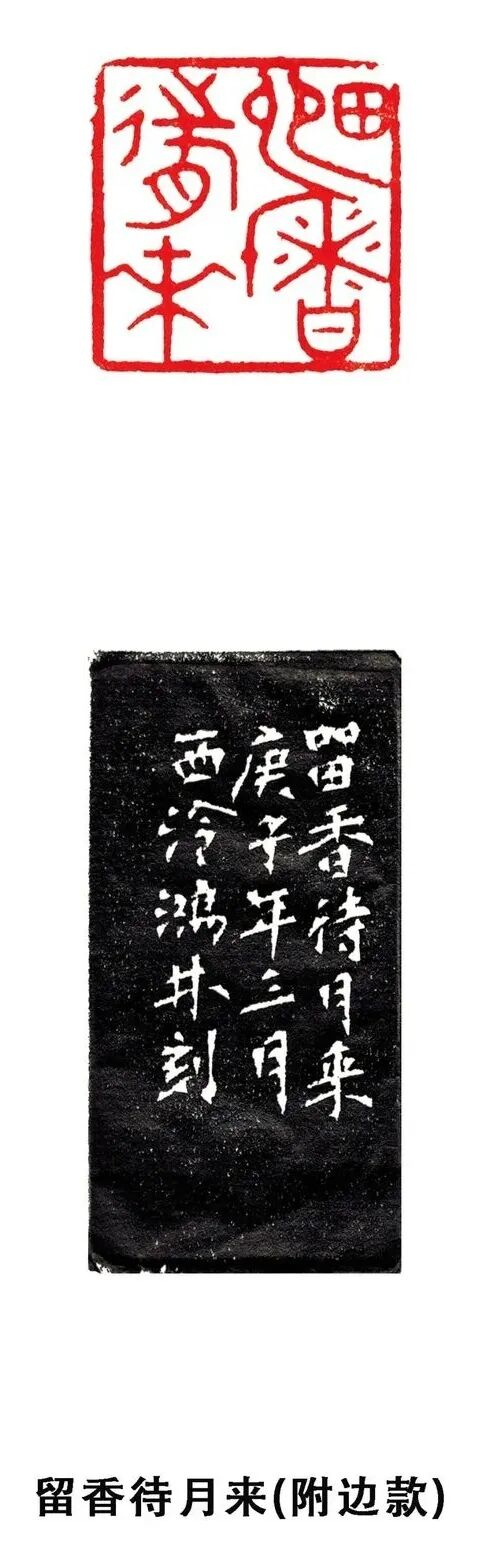 留香
待月来
留香待月来
庚子年三月
西泠鸿林刻
留香待月来(附边款)